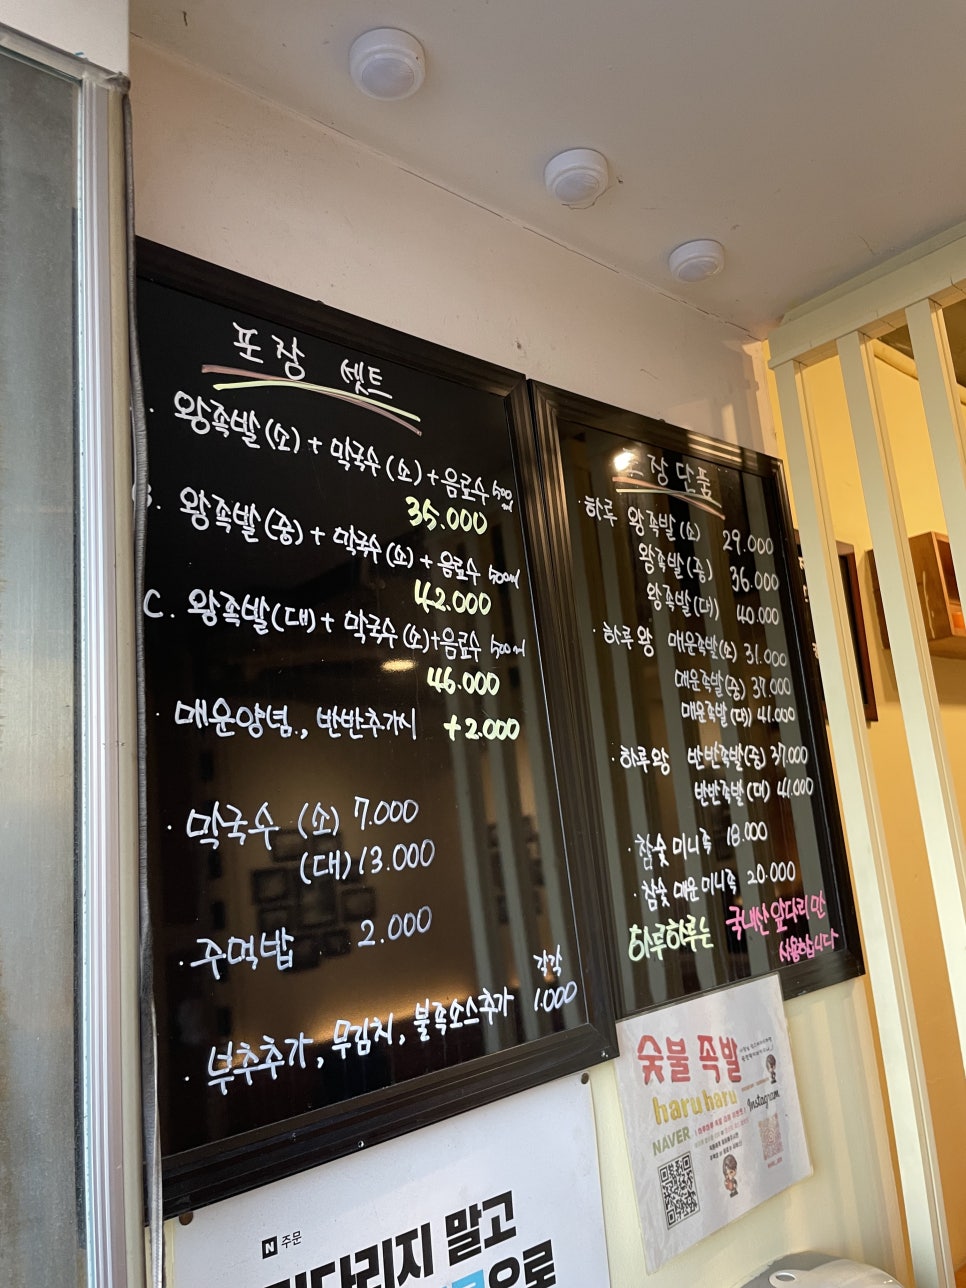 포장 셋트
· 왕족발(소) + 막국수(소) + 음료수 500
35.000
B. 왕족발(중) + 막국수(소) + 음료수 500ml
42.000
C. 왕족발(대) + 막국수(소) + 음료수 500ml
46.000
· 매운양념., 반반추가시 +2.000
· 막국수 (소) 7.000
(대) 13.000
· 주먹밥 2.000
각각
· 부추추가, 무김치, 불족소스추가 1.000
포장단품
· 하루 왕족발(소) 29.000
왕족발(중) 36.000
왕족발(대) 40.000
· 하루왕 매운족발(소) 31.000
매운족발(중) 37.000
매운족발(대) 41.000
· 하루왕 반반족발(중) 37.000
반반족발(대) 41.000
· 참숯 미니족 18.000
· 참숯 매운 미니족 20.000
하루하루는 국내산 앞다리만
사용합니다
숯불 족발
haru haru
Instagram
NAVER
N 주문
기다리지 말고
으로